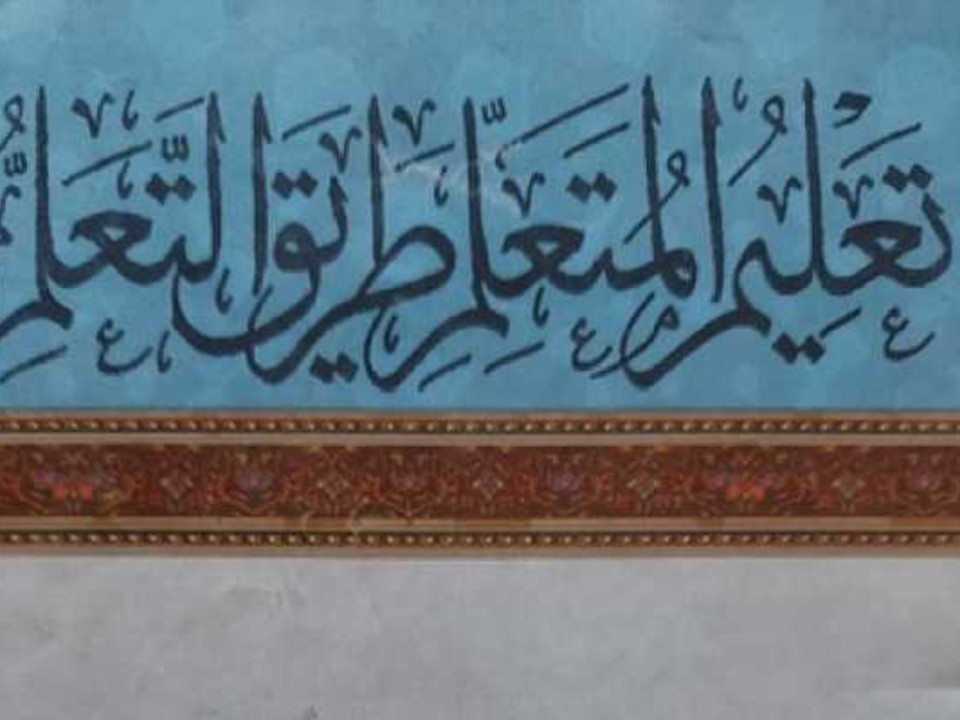 تَعْلِيمُ الْمُتَعَلِّمِ طَرِيقَ التَّعَلُّمِ